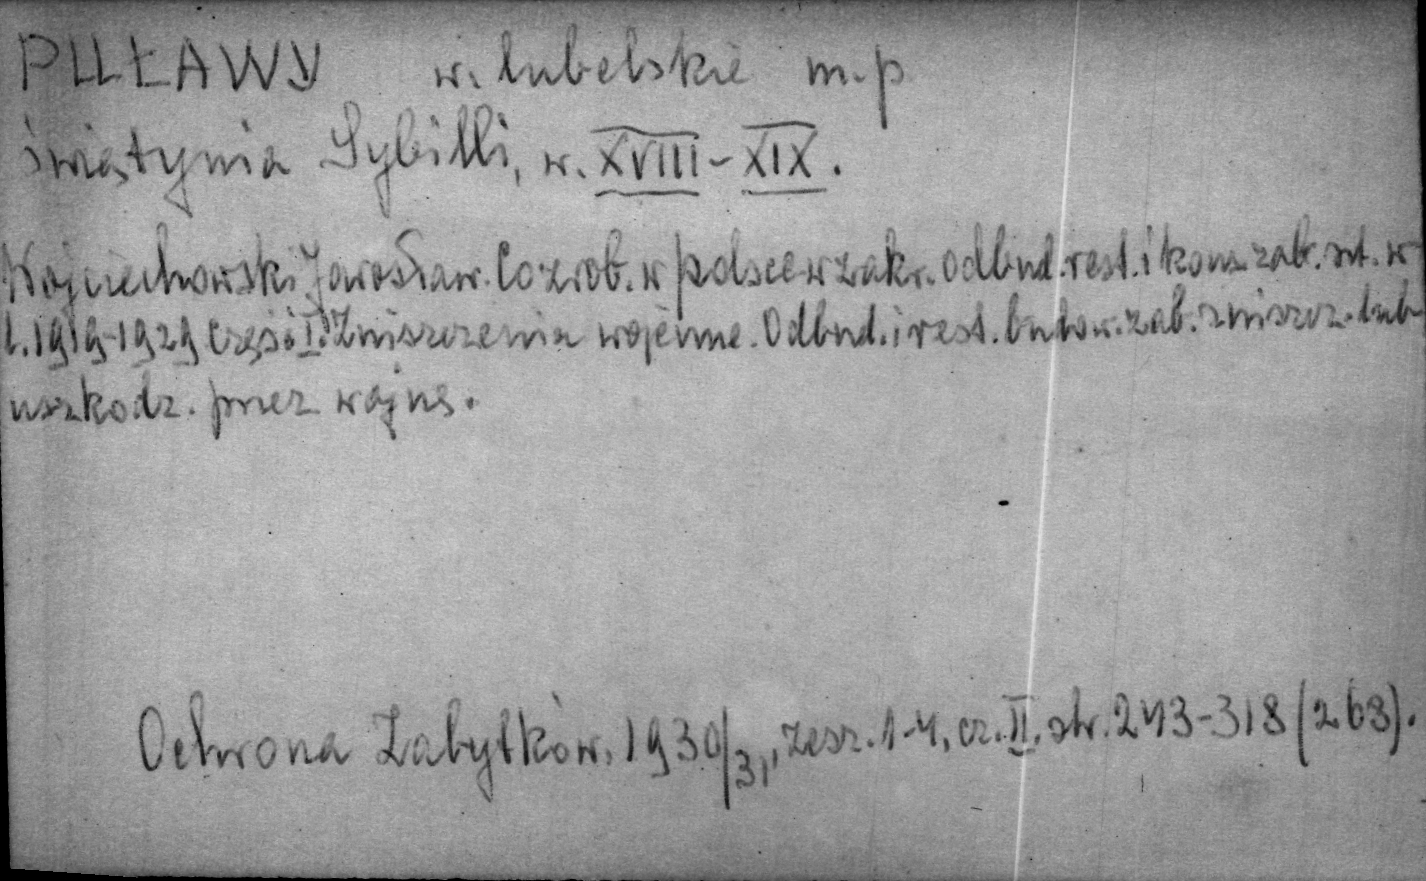 PUŁAWY w. lubelskie m.p
świątynia Sybilli, w. XVIII-XIX.
Wojciechowski Jarosław. Co zrob. w Polsce w zakr. odbud. rest. i kons. zab. szt. w
l. 1919-1929 Część I. Zniszczenia wojenne. Odbud. i rest. budow. zab. zniszcz. lub
uszkodz. przez wojnę.
Ochrona Zabytków, 1930/31, zesz. 1-4, cz. II, str. 243-318 (268).